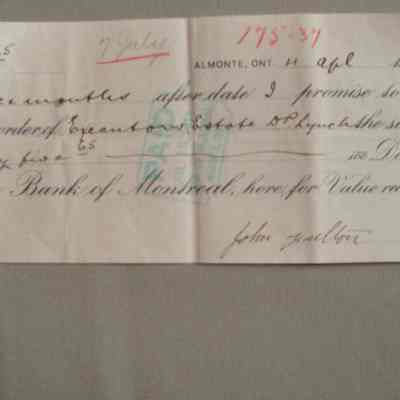 5 7 July 175.37
ALMONTE, ONT. 4 apl 1
months after date I promise to
order of Executors Estate D P Lynch the s
five 65/100 Do
Bank of Montreal, here, for Value re
PAID
John Fulton